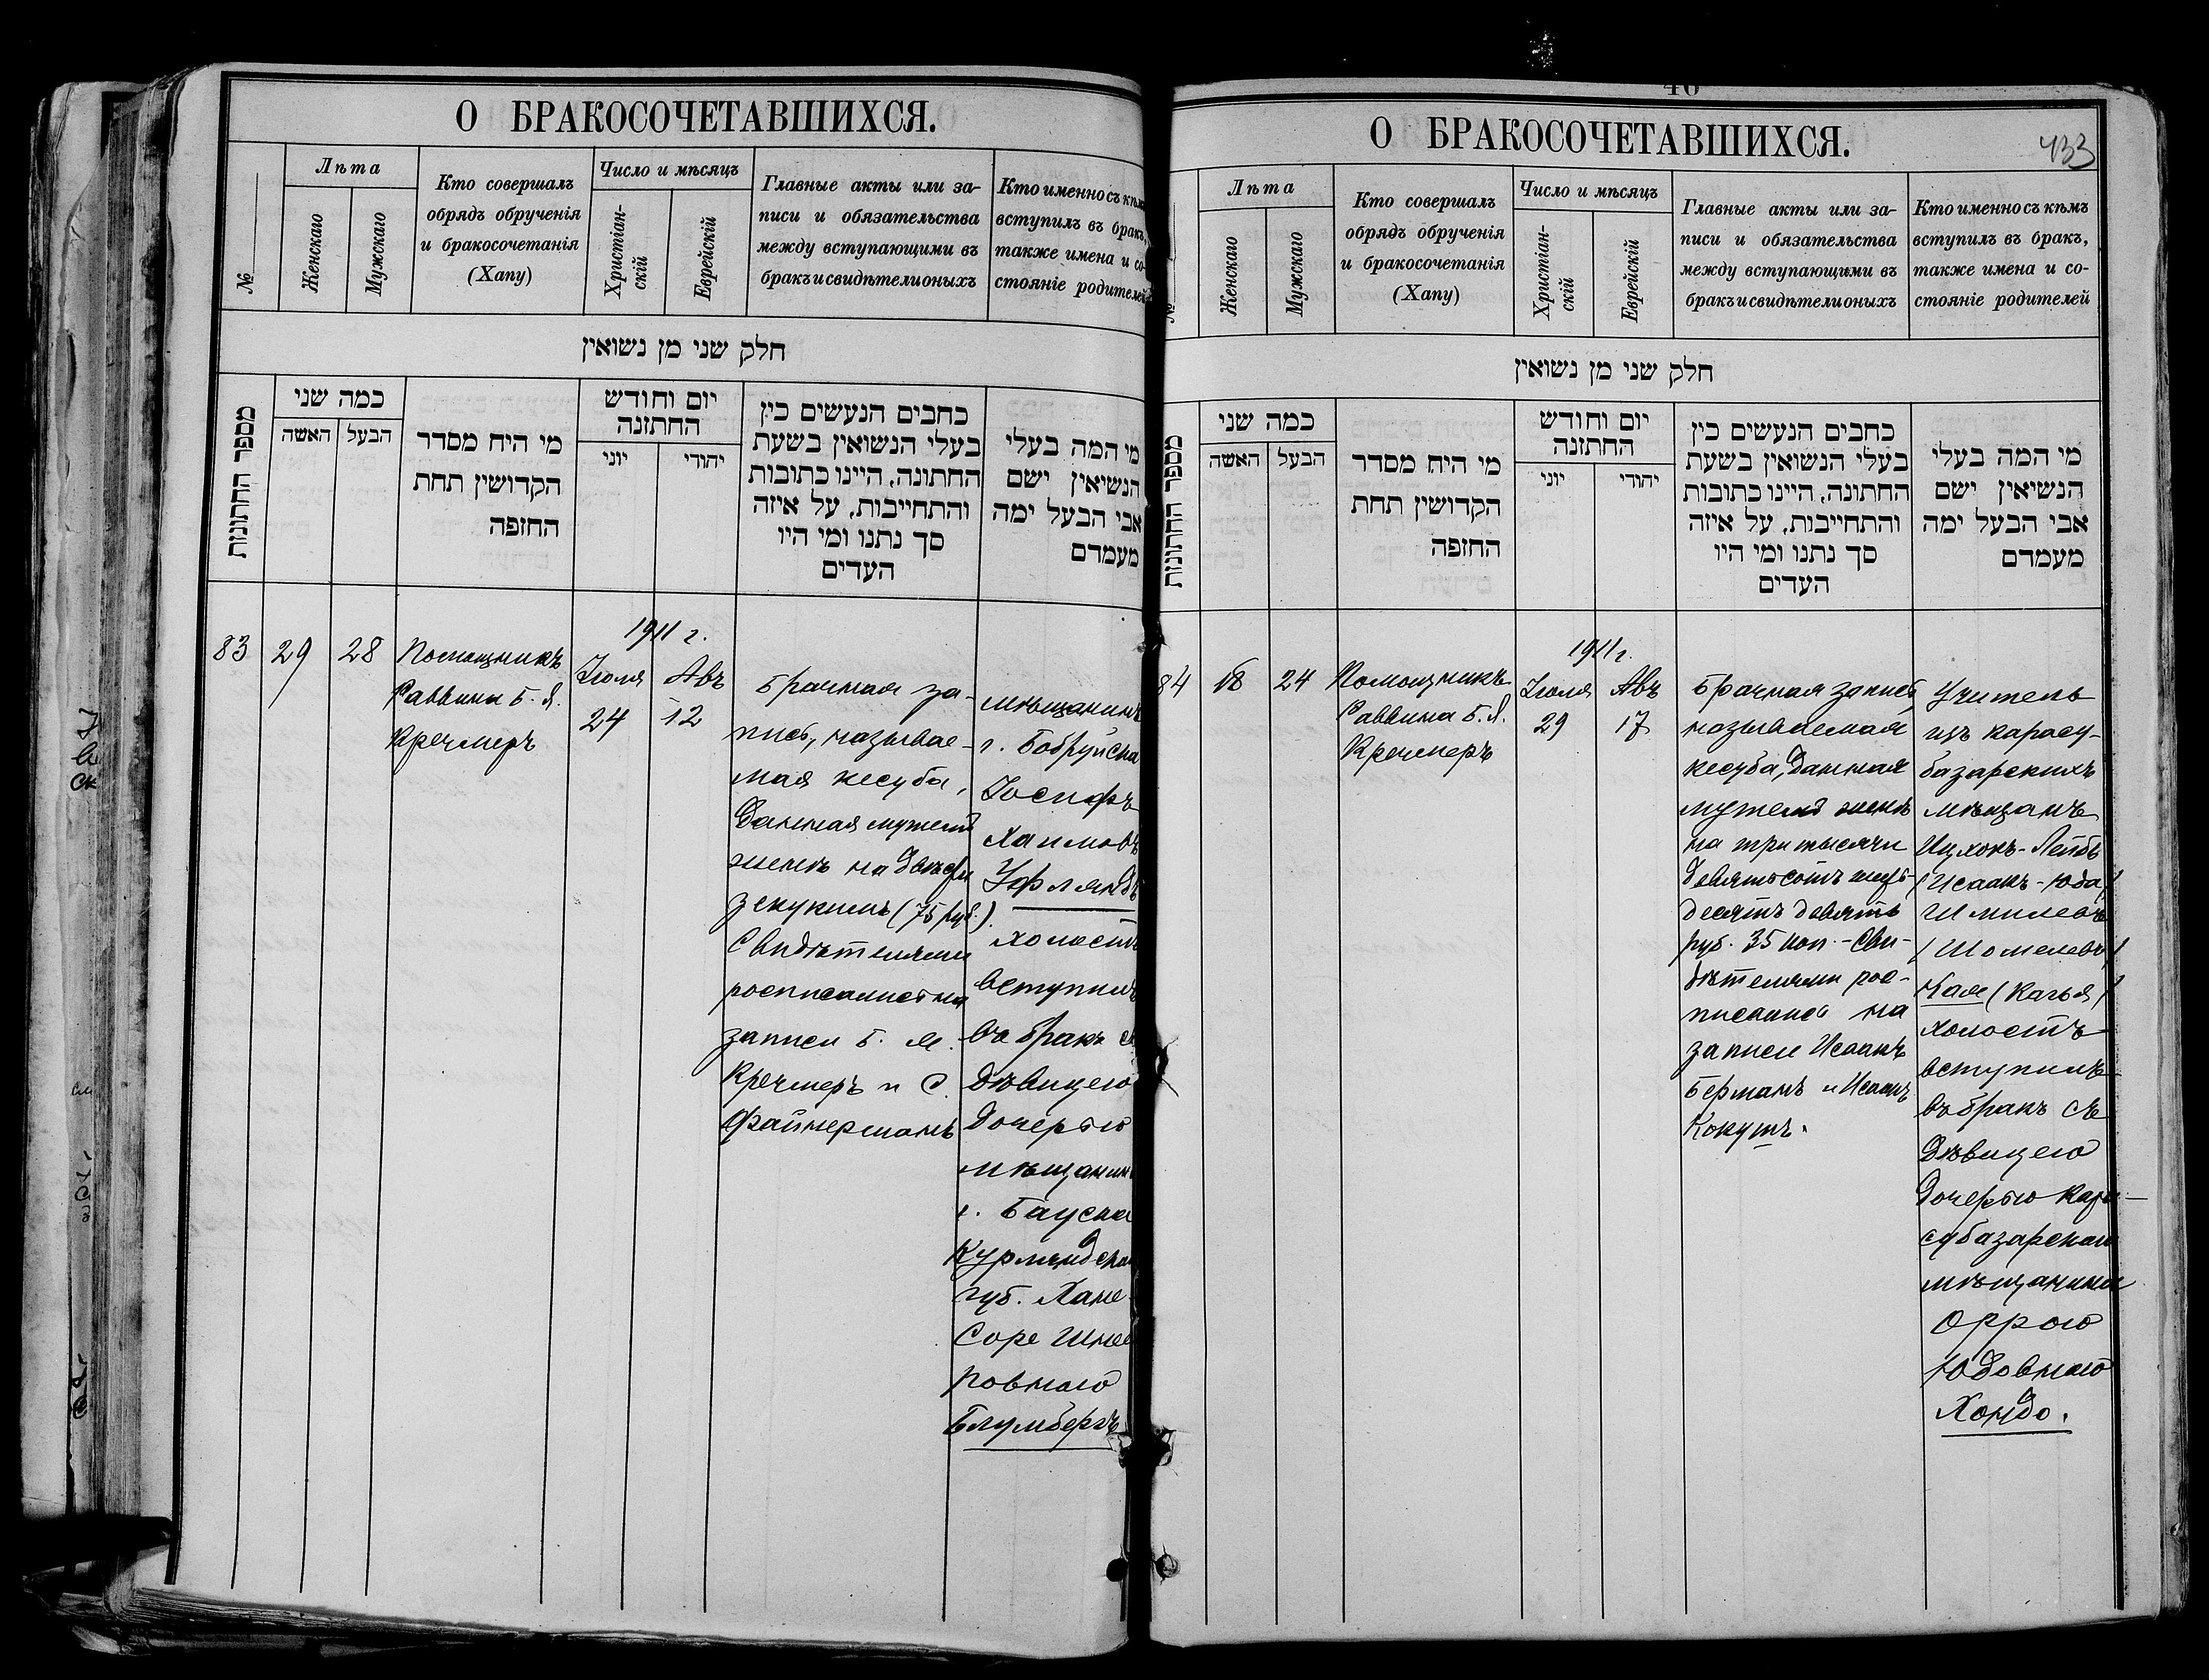 О БРАКОСОЧЕТАВШИХСЯ.
№
Лѣта
Женскаго
Мужскаго
Кто совершалъ
обрядъ обрученія
и бракосочетанія
(Хапу)
Число и мѣсяцъ
Христіан-
скій
Еврейскій
Главные акты или за-
писи и обязательства
между вступающими въ
бракъ и свидѣтели оныхъ
Кто именно съ кѣмъ
вступилъ въ бракъ,
также имена и со-
стояніе родителей
חלק שני מן נשואין
מספר החתונות
כמה שני
האשה
הבעל
מי היח מסדר
הקדושין תחת
החופה
יום וחודש
החתונה
יוני
יהודי
כתבים הנעשים בין
בעלי הנשואין בשעת
החתונה, היינו כתובות
והתחייבות, על איזה
סך נתנו ומי היו
העדים
מי המה בעלי
הנשיאין ישם
אבי הבעל ימה
מעמדם
83
29
28
Помощникъ
Раввина Б. Я.
Кречмеръ
1911 г.
Іюля
24
Авъ
12
Брачная за-
пись, называе-
мая кесуба,
данная мужемъ
женѣ на двѣсти
зекукимъ (75 руб.).
Свидѣтелями
росписались на
записи Б. М.
Кречмеръ и С.
Файнерманъ
мѣщанинъ
г. Бобруйска
Іосифъ
Хаимовъ
Уфляндъ
холостъ
вступилъ
въ бракъ съ
дѣвицею
дочерью
мѣщанин
г. Бауска
Курляндской
губ. Хане-
Соре Шнее
ровною
Блумбергъ
40
О БРАКОСОЧЕТАВШИХСЯ.
433
№
Лѣта
Женскаго
Мужскаго
Кто совершалъ
обрядъ обрученія
и бракосочетанія
(Хапу)
Число и мѣсяцъ
Христіан-
скій
Еврейскій
Главные акты или за-
писи и обязательства
между вступающими въ
бракъ и свидѣтели оныхъ
Кто именно съ кѣмъ
вступилъ въ бракъ,
также имена и со-
стояніе родителей
חלק שני מן נשואין
מספר החתונות
כמה שני
האשה
הבעל
מי היח מסדר
הקדושין תחת
החופה
יום וחודש
החתונה
יוני
יהודי
כתבים הנעשים בין
בעלי הנשואין בשעת
החתונה, היינו כתובות
והתחייבות, על איזה
סך נתנו ומי היו
העדים
מי המה בעלי
הנשיאין ישם
אבי הבעל ימה
מעמדם
84
18
24
Помощникъ
Раввина Б. Я.
Кречмеръ
1911 г.
Іюля
29
Авъ
17
Брачная запись
называемая
кесуба, данная
мужемъ женѣ
на три тысячи
девятьсотъ шесть-
десятъ девять
руб. 35 коп. - Сви-
дѣтелями рос-
писались на
записи Исаакъ
Берманъ и Исаакъ
Кокушъ.
Учитель
изъ карасу-
базарскихъ
мѣщанъ
Ицхокъ-Лейбъ
(Исаакъ-Юда)
Шмилевъ
(Шомелевъ)
Кая (Кагья)
холостъ
вступилъ
въ бракъ съ
дѣвицею
дочерью Кара-
субазарскаго
мѣщанина
Оррою
Юдовною
Хондо.